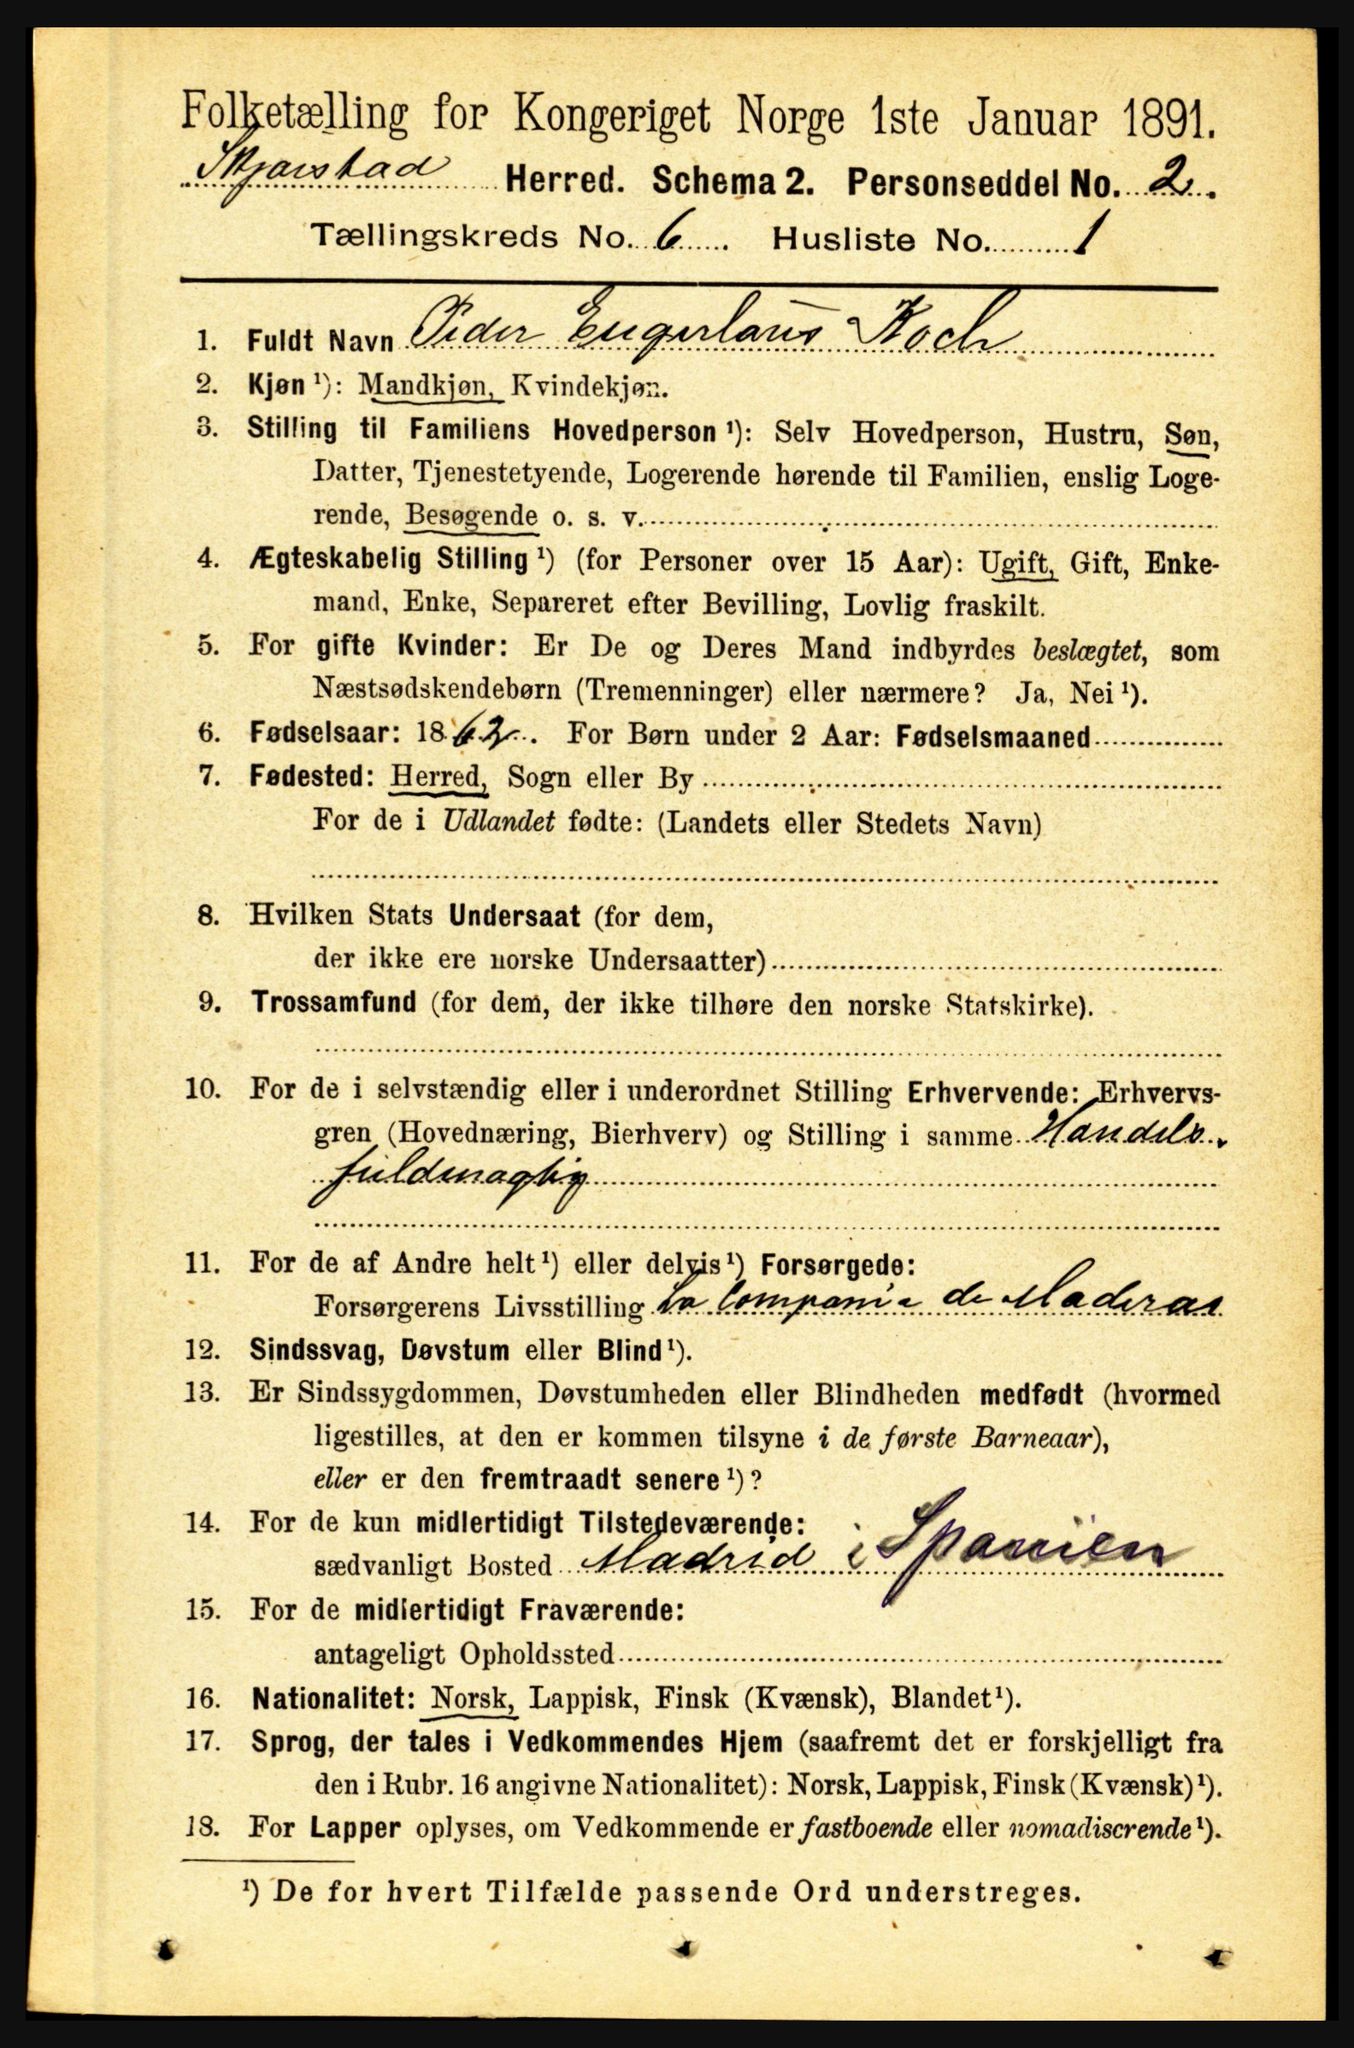 Folketælling for Kongeriget Norge 1ste Januar 1891.
Skjærstad Herred. Schema 2. Personseddel No. 2.
Tællingskreds No. 6. Husliste No. 1
1. Fuldt Navn Peder Engerlaus Koch
2. Kjøn ¹): Mandkjøn, Kvindekjøn.
3. Stilling til Familiens Hovedperson ¹): Selv Hovedperson, Hustru, Søn,
Datter, Tjenestetyende, Logerende hørende til Familien, enslig Loge-
rende, Besøgende o. s. v.
4. Ægteskabelig Stilling ¹) (for Personer over 15 Aar): Ugift, Gift, Enke-
mand, Enke, Separeret efter Bevilling, Lovlig fraskilt.
5. For gifte Kvinder: Er De og Deres Mand indbyrdes beslægtet, som
Næstsødskendebørn (Tremenninger) eller nærmere? Ja, Nei ¹).
6. Fødselsaar: 1862. For Børn under 2 Aar: Fødselsmaaned
7. Fødested: Herred, Sogn eller By
For de i Udlandet fødte: (Landets eller Stedets Navn)
8. Hvilken Stats Undersaat (for dem,
der ikke ere norske Undersaatter)
9. Trossamfund (for dem, der ikke tilhøre den norske Statskirke).
10. For de i selvstændig eller i underordnet Stilling Erhvervende: Erhvervs-
gren (Hovednæring, Bierhverv) og Stilling i samme Handels
fuldmægtig
11. For de af Andre helt ¹) eller delvis ¹) Forsørgede:
Forsørgerens Livsstilling La Compania de Maderas
12. Sindssvag, Døvstum eller Blind ¹).
13. Er Sindssygdommen, Døvstumheden eller Blindheden medfødt (hvormed
ligestilles, at den er kommen tilsyne i de første Barneaar),
eller er den fremtraadt senere ¹)?
14. For de kun midlertidigt Tilstedeværende:
sædvanligt Bosted Madrid i Spanien
15. For de midlertidigt Fraværende:
antageligt Opholdssted
16. Nationalitet: Norsk, Lappisk, Finsk (Kvænsk), Blandet ¹).
17. Sprog, der tales i Vedkommendes Hjem (saafremt det er forskjelligt fra
den i Rubr. 16 angivne Nationalitet): Norsk, Lappisk, Finsk (Kvænsk) ¹).
18. For Lapper oplyses, om Vedkommende er fastboende eller nomadiserende ¹).
¹) De for hvert Tilfælde passende Ord understreges.